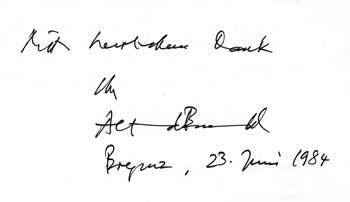 Mit herzlichem Dank
Ihr
Bregenz, 23. Juni 1984